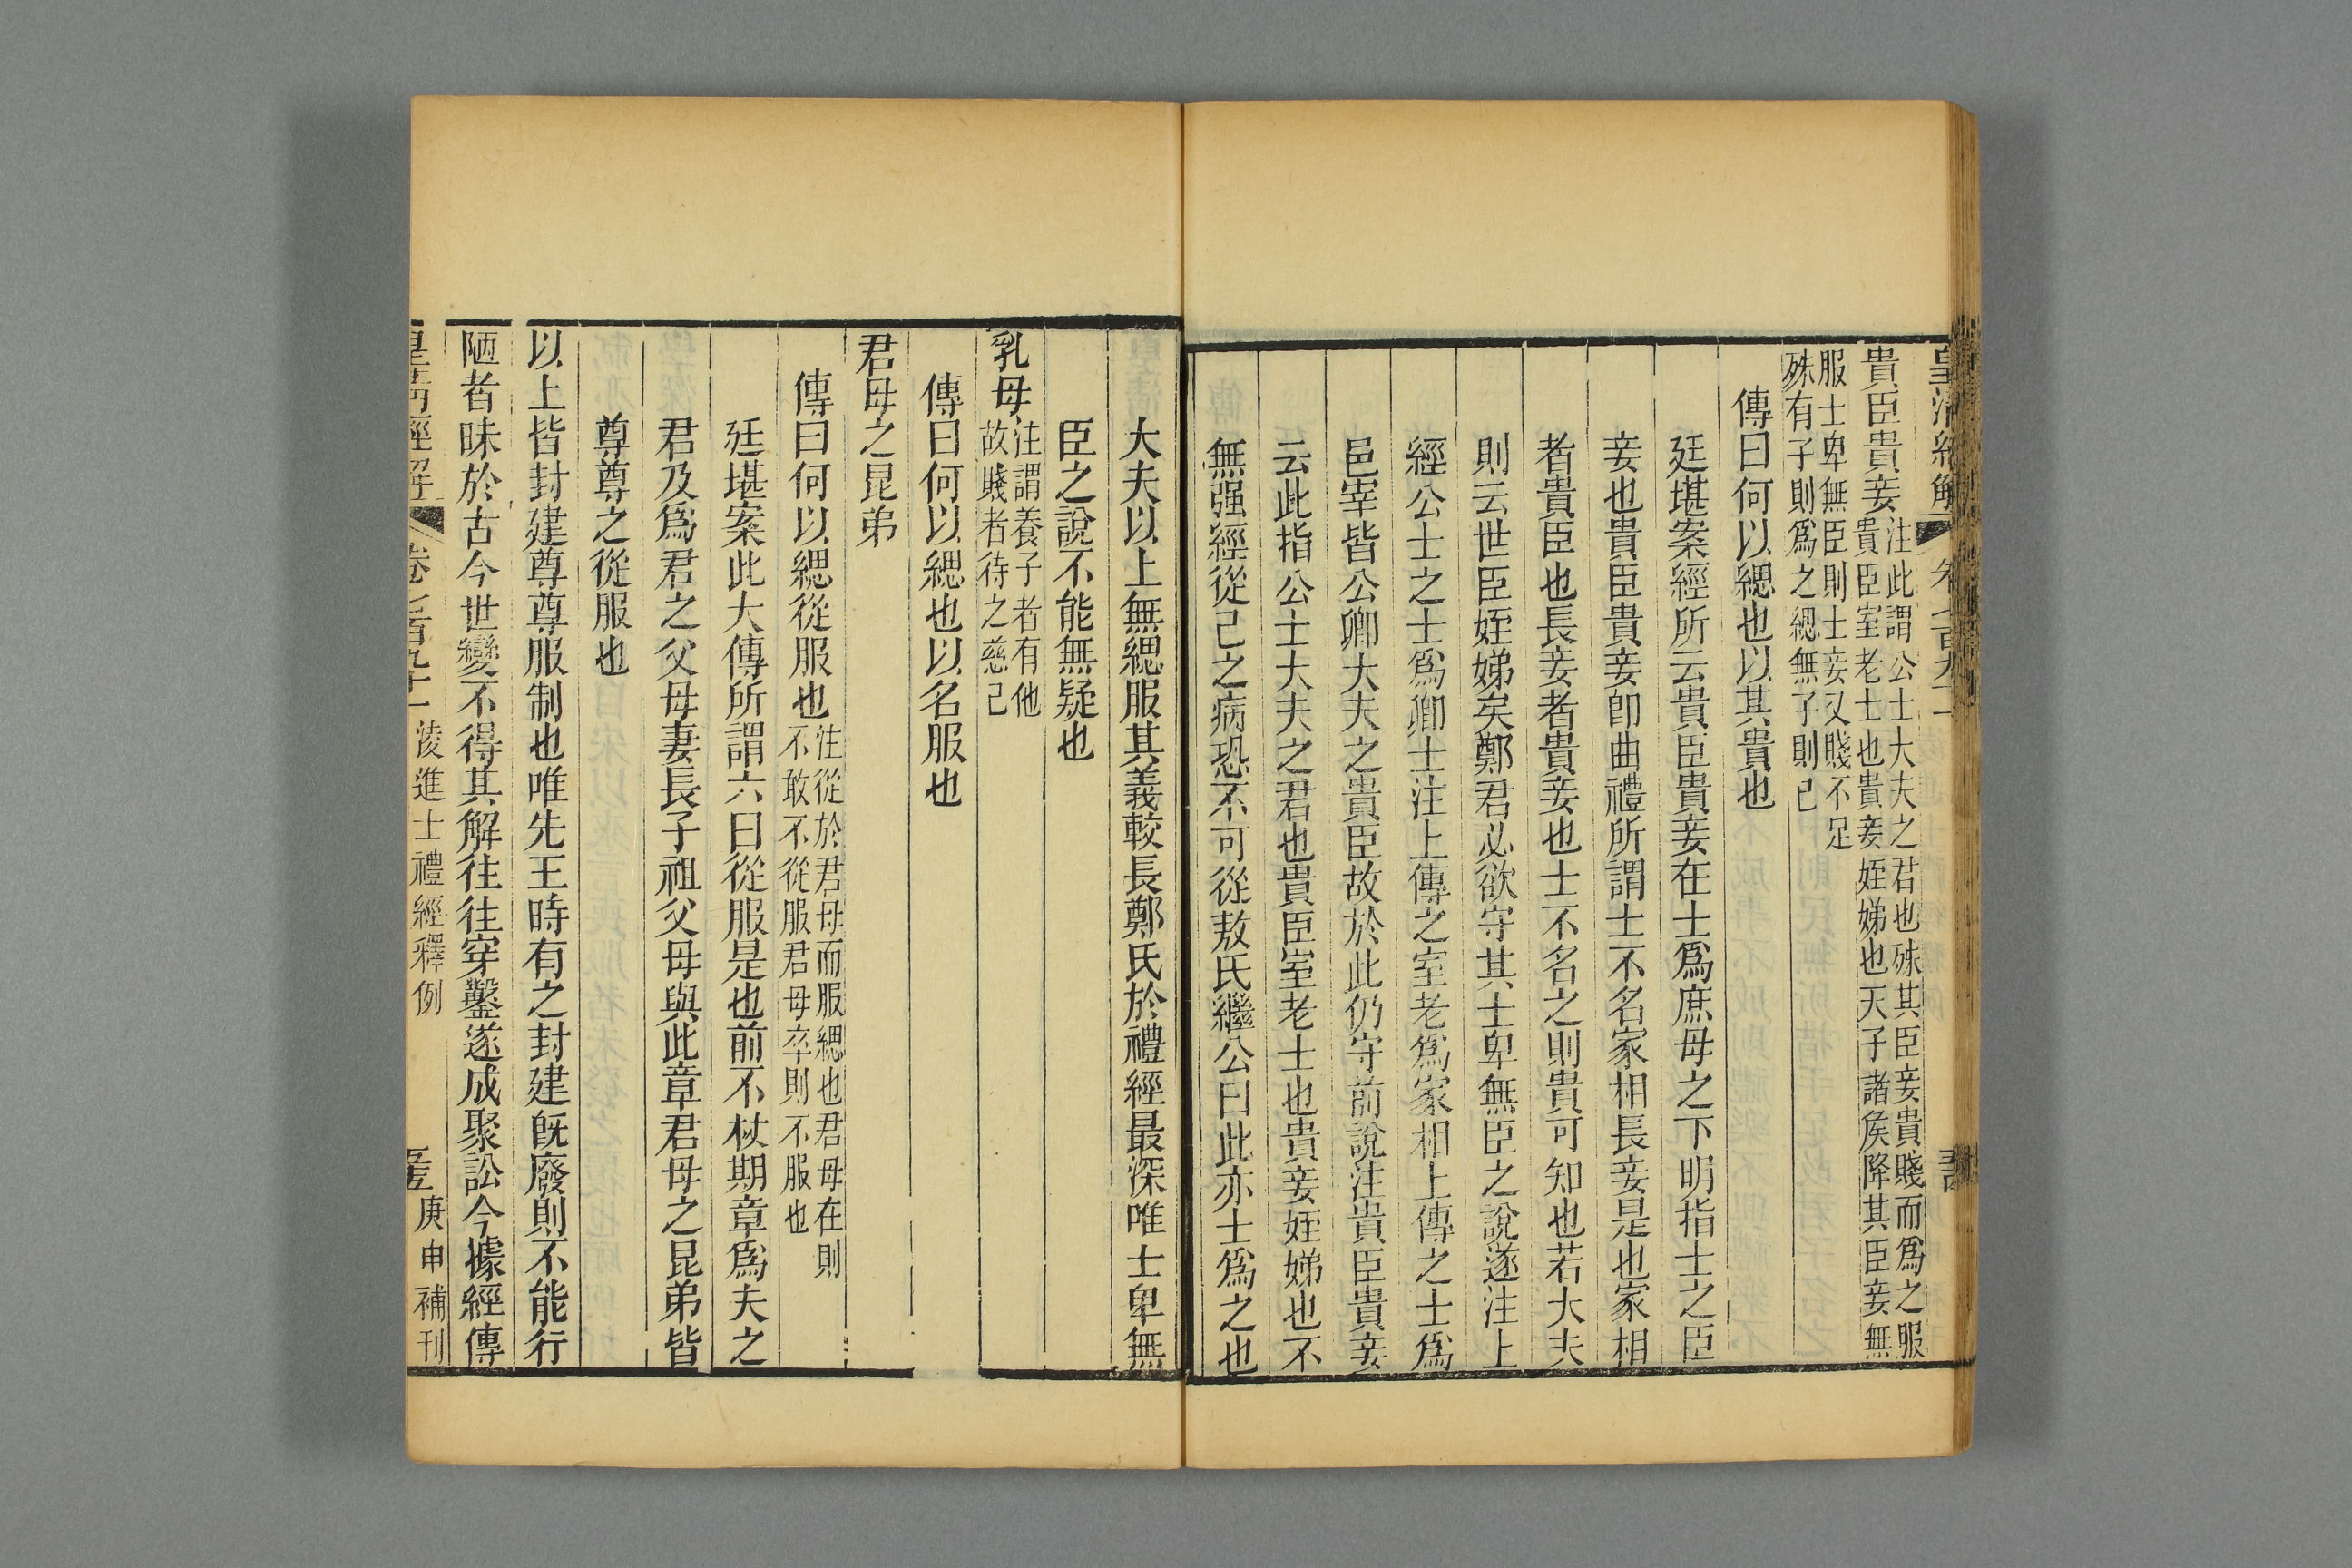 皇清經解 卷七百九十一
貴臣貴妾注此謂公士大夫之君也殊其臣妾貴賤而爲之服
貴臣室老士也貴妾姪娣也天子諸侯降其臣妾無
服士卑無臣則士妾又賤不足
殊有子則爲之緦無子則已
傳曰何以緦也以其貴也
廷堪案經所云貴臣貴妾在士爲庶母之下明指士之臣
妾也貴臣貴妾卽曲禮所謂士不名家相長妾是也家相
者貴臣也長妾者貴妾也士不名之則貴可知也若大夫
則云世臣姪娣矣鄭君必欲守其士卑無臣之說遂注上
經公士之士爲卿士注上傳之室老爲家相上傳之士爲
邑宰皆公卿大夫之貴臣故於此仍守前說注貴臣貴妾
云此指公士大夫之君也貴臣室老士也貴妾姪娣也不
無强經從己之病恐不可從敖氏繼公曰此亦士爲之也
大夫以上無緦服其義較長鄭氏於禮經最深唯士卑無
臣之說不能無疑也
乳母注謂養子者有他
故賤者待之慈己
傳曰何以緦也以名服也
君母之昆弟
傳曰何以緦從服也注從於君母而服緦也君母在則
不敢不從服君母卒則不服也
廷堪案此大傳所謂六曰從服是也前不杖期章爲夫之
君及爲君之父母妻長子祖父母與此章君母之昆弟皆
尊尊之從服也
以上皆封建尊尊服制也唯先王時有之封建旣廢則不能行
陋者昧於古今世變不得其解往往穿鑿遂成聚訟今據經傳
皇清經解 卷七百九十一 淩進士禮經釋例 庚申補刊